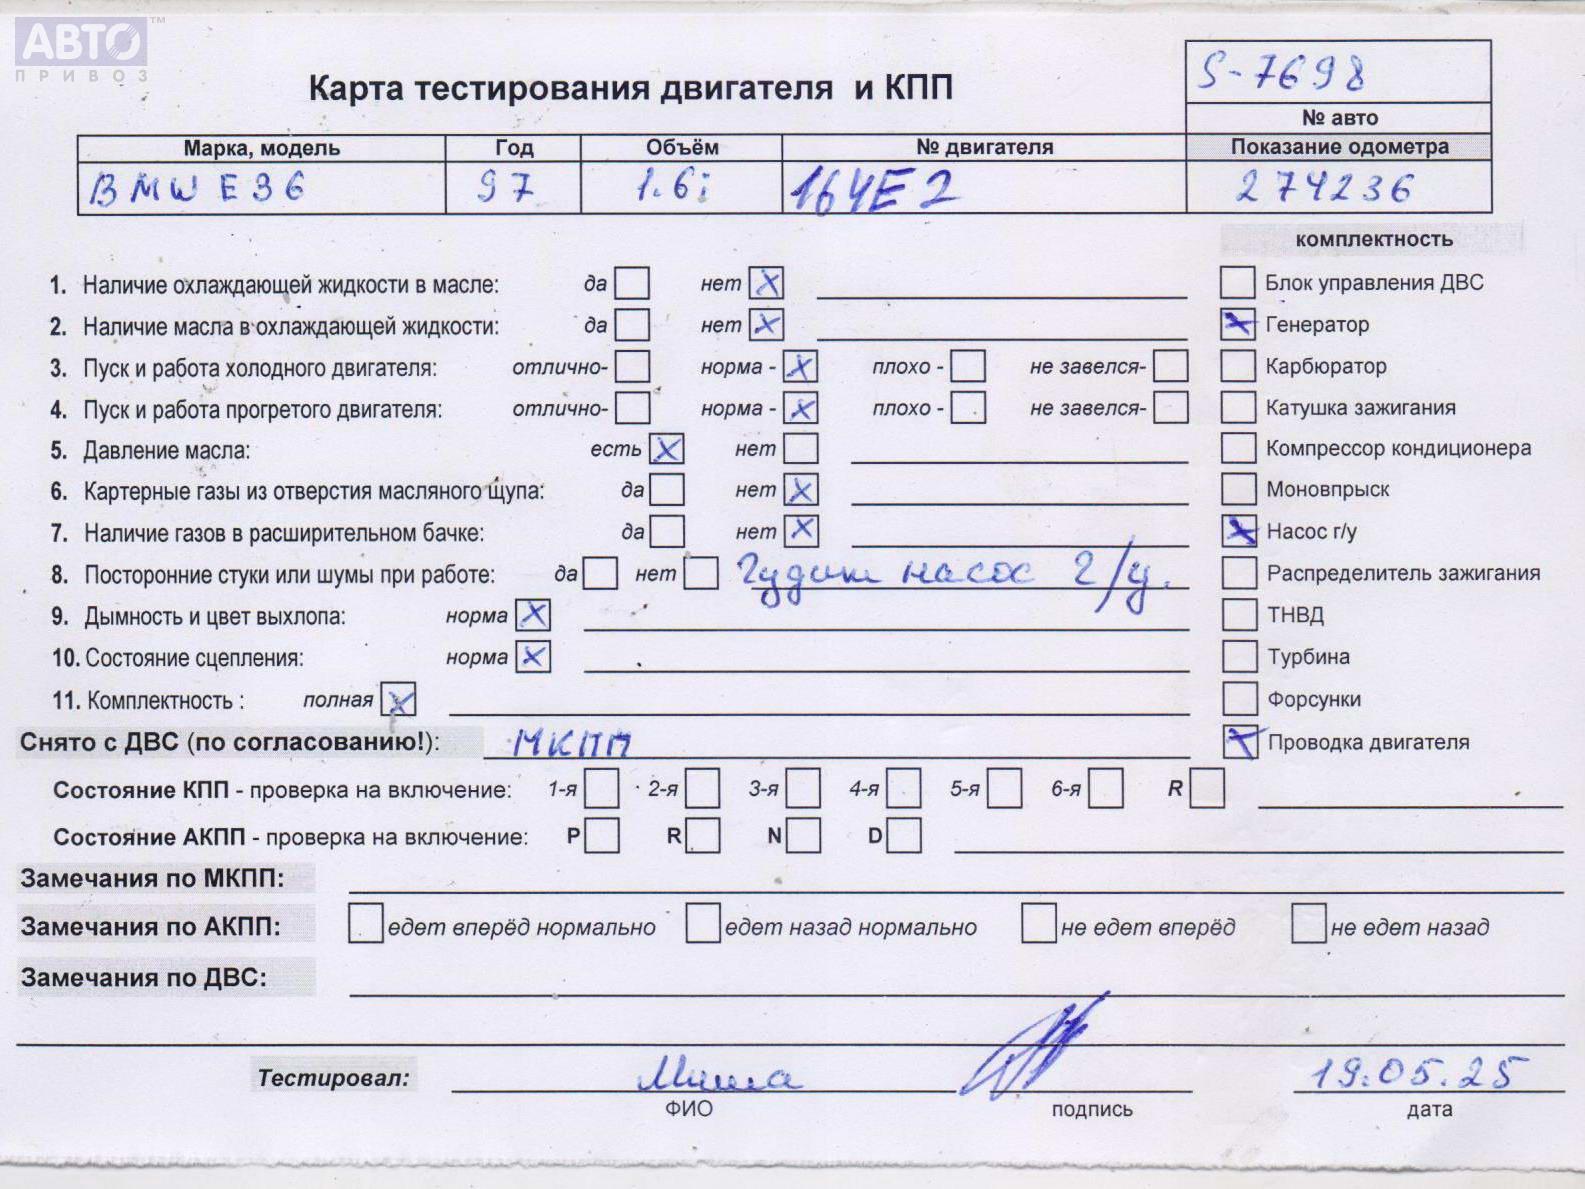 АВТО™
ПРИВОЗ
S-7698
Карта тестирования двигателя и КПП
№ авто
Марка, модель Год Объём № двигателя Показание одометра
BMW E36 97 1.6i 164E2 274236
комплектность
1. Наличие охлаждающей жидкости в масле: да нет X Блок управления ДВС
2. Наличие масла в охлаждающей жидкости: да нет X X Генератор
3. Пуск и работа холодного двигателя: отлично- норма - X плохо - не завелся- Карбюратор
4. Пуск и работа прогретого двигателя: отлично- норма - X плохо - не завелся- Катушка зажигания
5. Давление масла: есть X нет Компрессор кондиционера
6. Картерные газы из отверстия масляного щупа: да нет X Моновпрыск
7. Наличие газов в расширительном бачке: да нет X X Насос г/у
8. Посторонние стуки или шумы при работе: да нет Гудит насос г/у. Распределитель зажигания
9. Дымность и цвет выхлопа: норма X ТНВД
10. Состояние сцепления: норма X Турбина
11. Комплектность : полная X Форсунки
Снято с ДВС (по согласованию!): МКПП X Проводка двигателя
Состояние КПП - проверка на включение: 1-я 2-я 3-я 4-я 5-я 6-я R
Состояние АКПП - проверка на включение: P R N D
Замечания по МКПП:
Замечания по АКПП: едет вперёд нормально едет назад нормально не едет вперёд не едет назад
Замечания по ДВС:
Тестировал: Миша 19.05.25
ФИО подпись дата